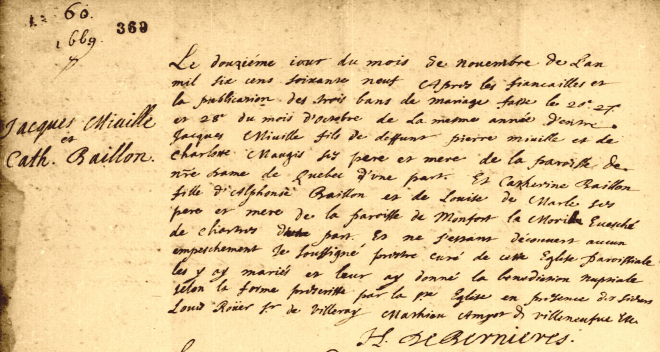 60
1669
369
Jacques Miville
et
Cath. Baillon.
Le douziéme iour du mois de novembre de l'an
mil six cens soixante neuf Apres les fiancailles et
la publication des trois bans de mariage faitte les 20e 27
et 28e du mois d'octobre de la mesme année d'entre
Jacques Miville fils de deffunt pierre miville et de
Charlotte Maugis ses pere et mere de la paroisse de
nre Dame de Quebec d'une part. Et Catherine Baillon
fille d'Alphonse Baillon et de Louise de Marle ses
pere et mere de la paroisse de Monfort la Evesché
de chartres part. Et ne s'estant découvert aucun
empeschement Je soussigné prestre curé de cette Eglise paroissiale
les y ay mariés et leur ay donné la benediction nuptiale
selon la forme prescritte par la Ste Eglise en presence des sieurs
Louis Roüer Sr de Villeray Mathieu Amyot de Villeneufue
H. DeBernieres.